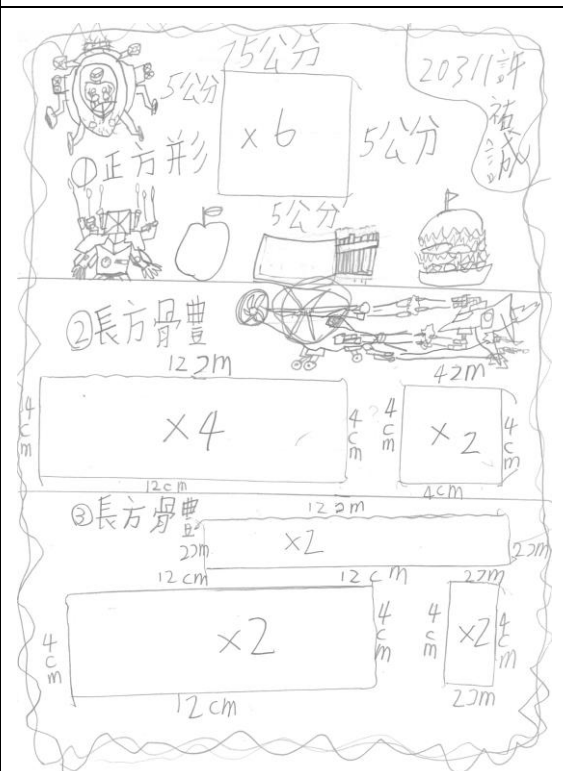 15公分
20311許祐誠
5公分
×6
5公分
①正方形
5公分
②長方骨豊
12cm
42m
4cm
×4
4cm
4cm
×2
4cm
12cm
4cm
③長方骨豊
12cm
2cm
×2
2cm
12cm
12cm
2cm
4cm
×2
4cm
4cm
×2
4cm
12cm
2cm